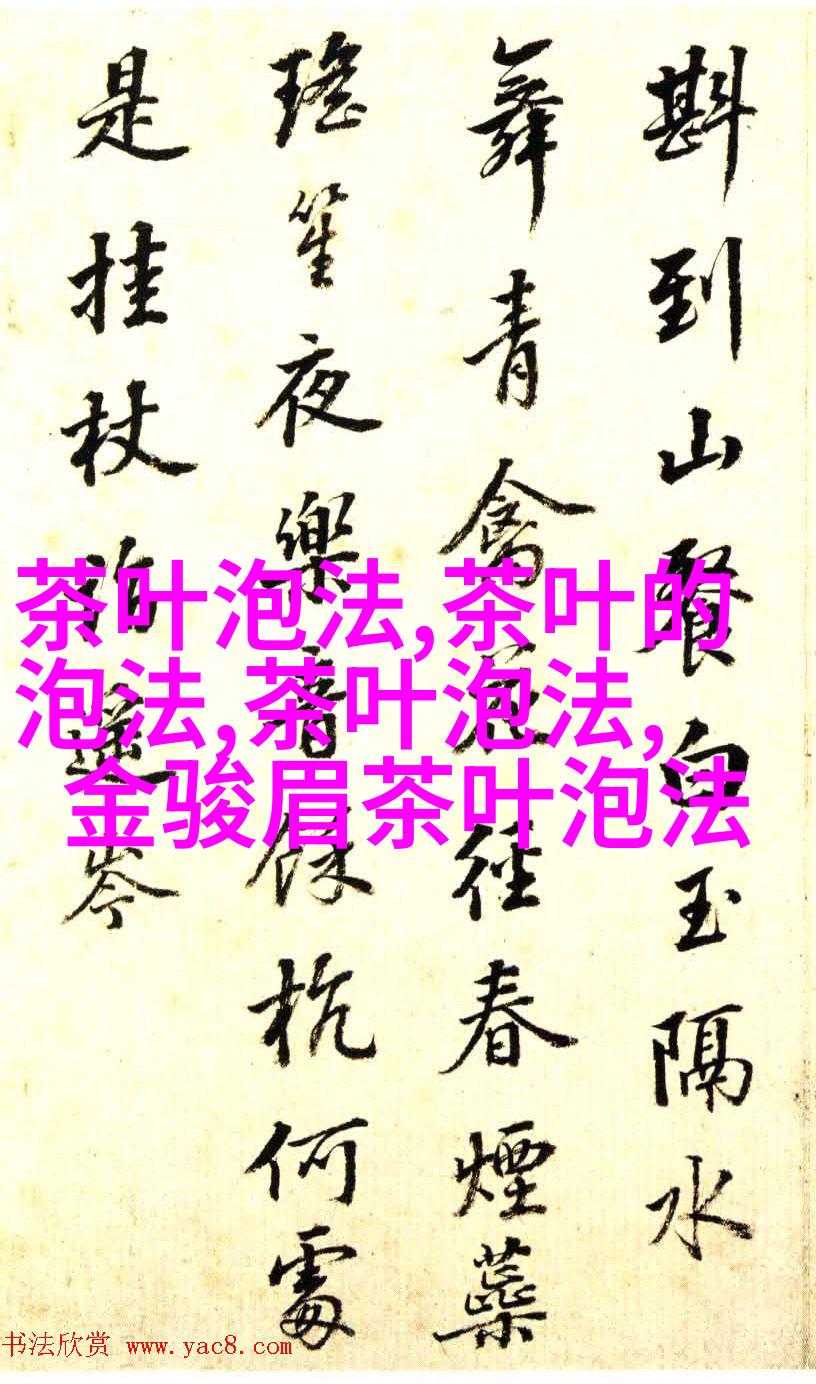 斟到山餐白玉隔水
舞青禽花徑春煙蘂
瑤笙夜樂音餘杭何處
是挂杖指遥岑
茶叶泡法,茶叶的
泡法,茶叶泡法,
金骏眉茶叶泡法
书法欣赏 www.yac8.com